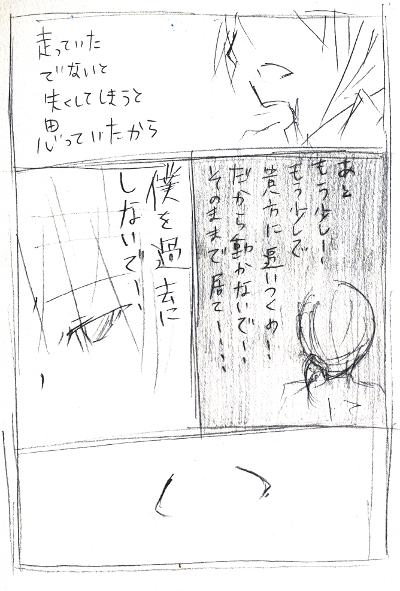 走っていた
でないと
失くしてしまうと
思っていたから
あと
もう少し…
もう少しで
貴方に追いつくの…!
だから動かないで…!
そのままで居て…!!
僕を過去に
しないで…!